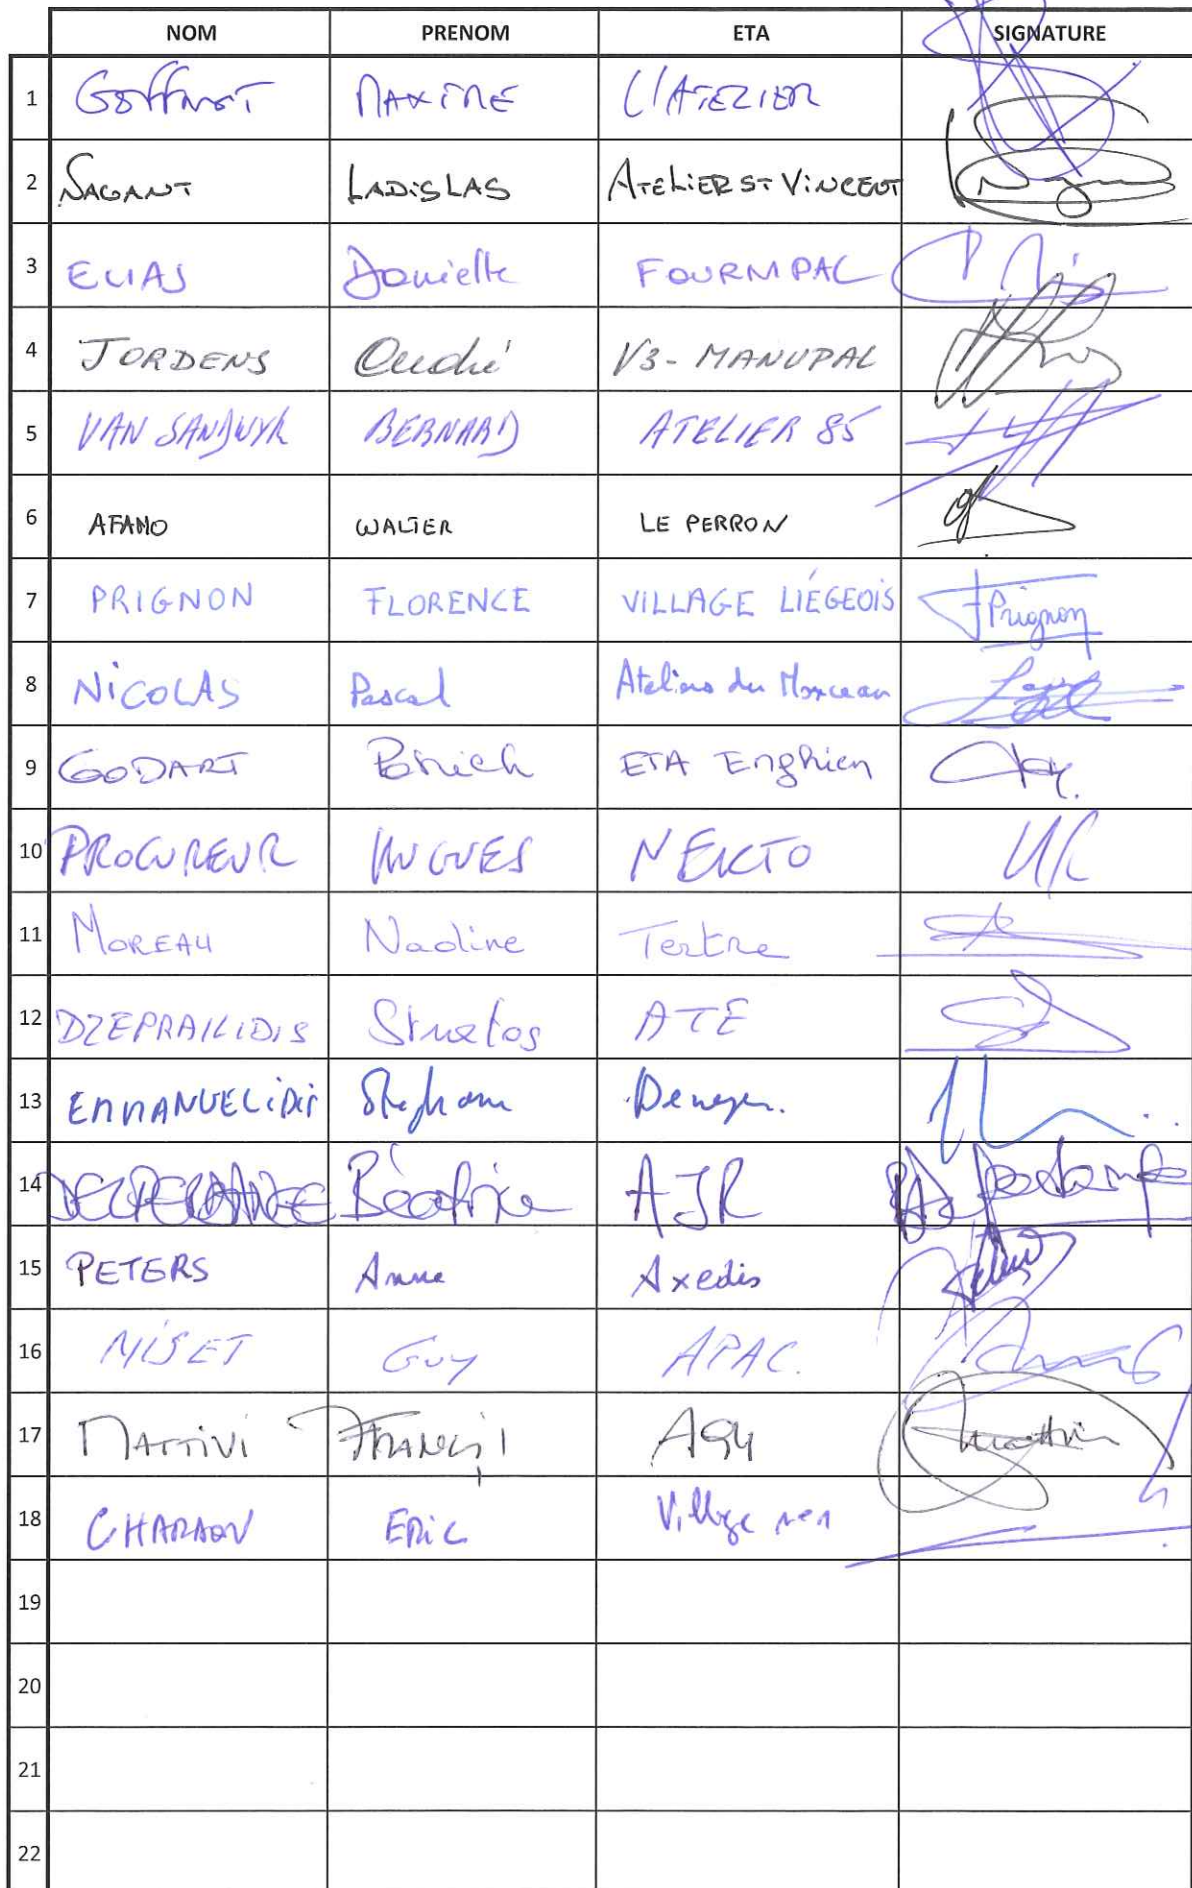 NOM PRENOM ETA SIGNATURE
1 GOFFINET MAXIME L'ATELIER
2 SAGANT LADISLAS ATELIER ST VINCENT
3 ELIAS Danielle FOURMIPAC
4 JORDENS André V3-MANUPAL
5 VAN SANDWYK BERNARD ATELIER 85
6 AFANO WALTER LE PERRON
7 PRIGNON FLORENCE VILLAGE LIÉGEOIS FPrignon
8 NICOLAS Pascal Ateliers du Monceau
9 GODART Patrick ETA Enghien
10 PROCUREUR HUGUES NEKTO
11 MOREAU Nadine Tertre
12 DZEPRAILIDIS Stratos ATE
13 EMMANUELIDIS Stephane Deneyer.
14 Béatrice AJR
15 PETERS Anne Axedis
16 MISET Guy APAC.
17 MATTIVI FRANCIS
18 ERIC Village
19
20
21
22